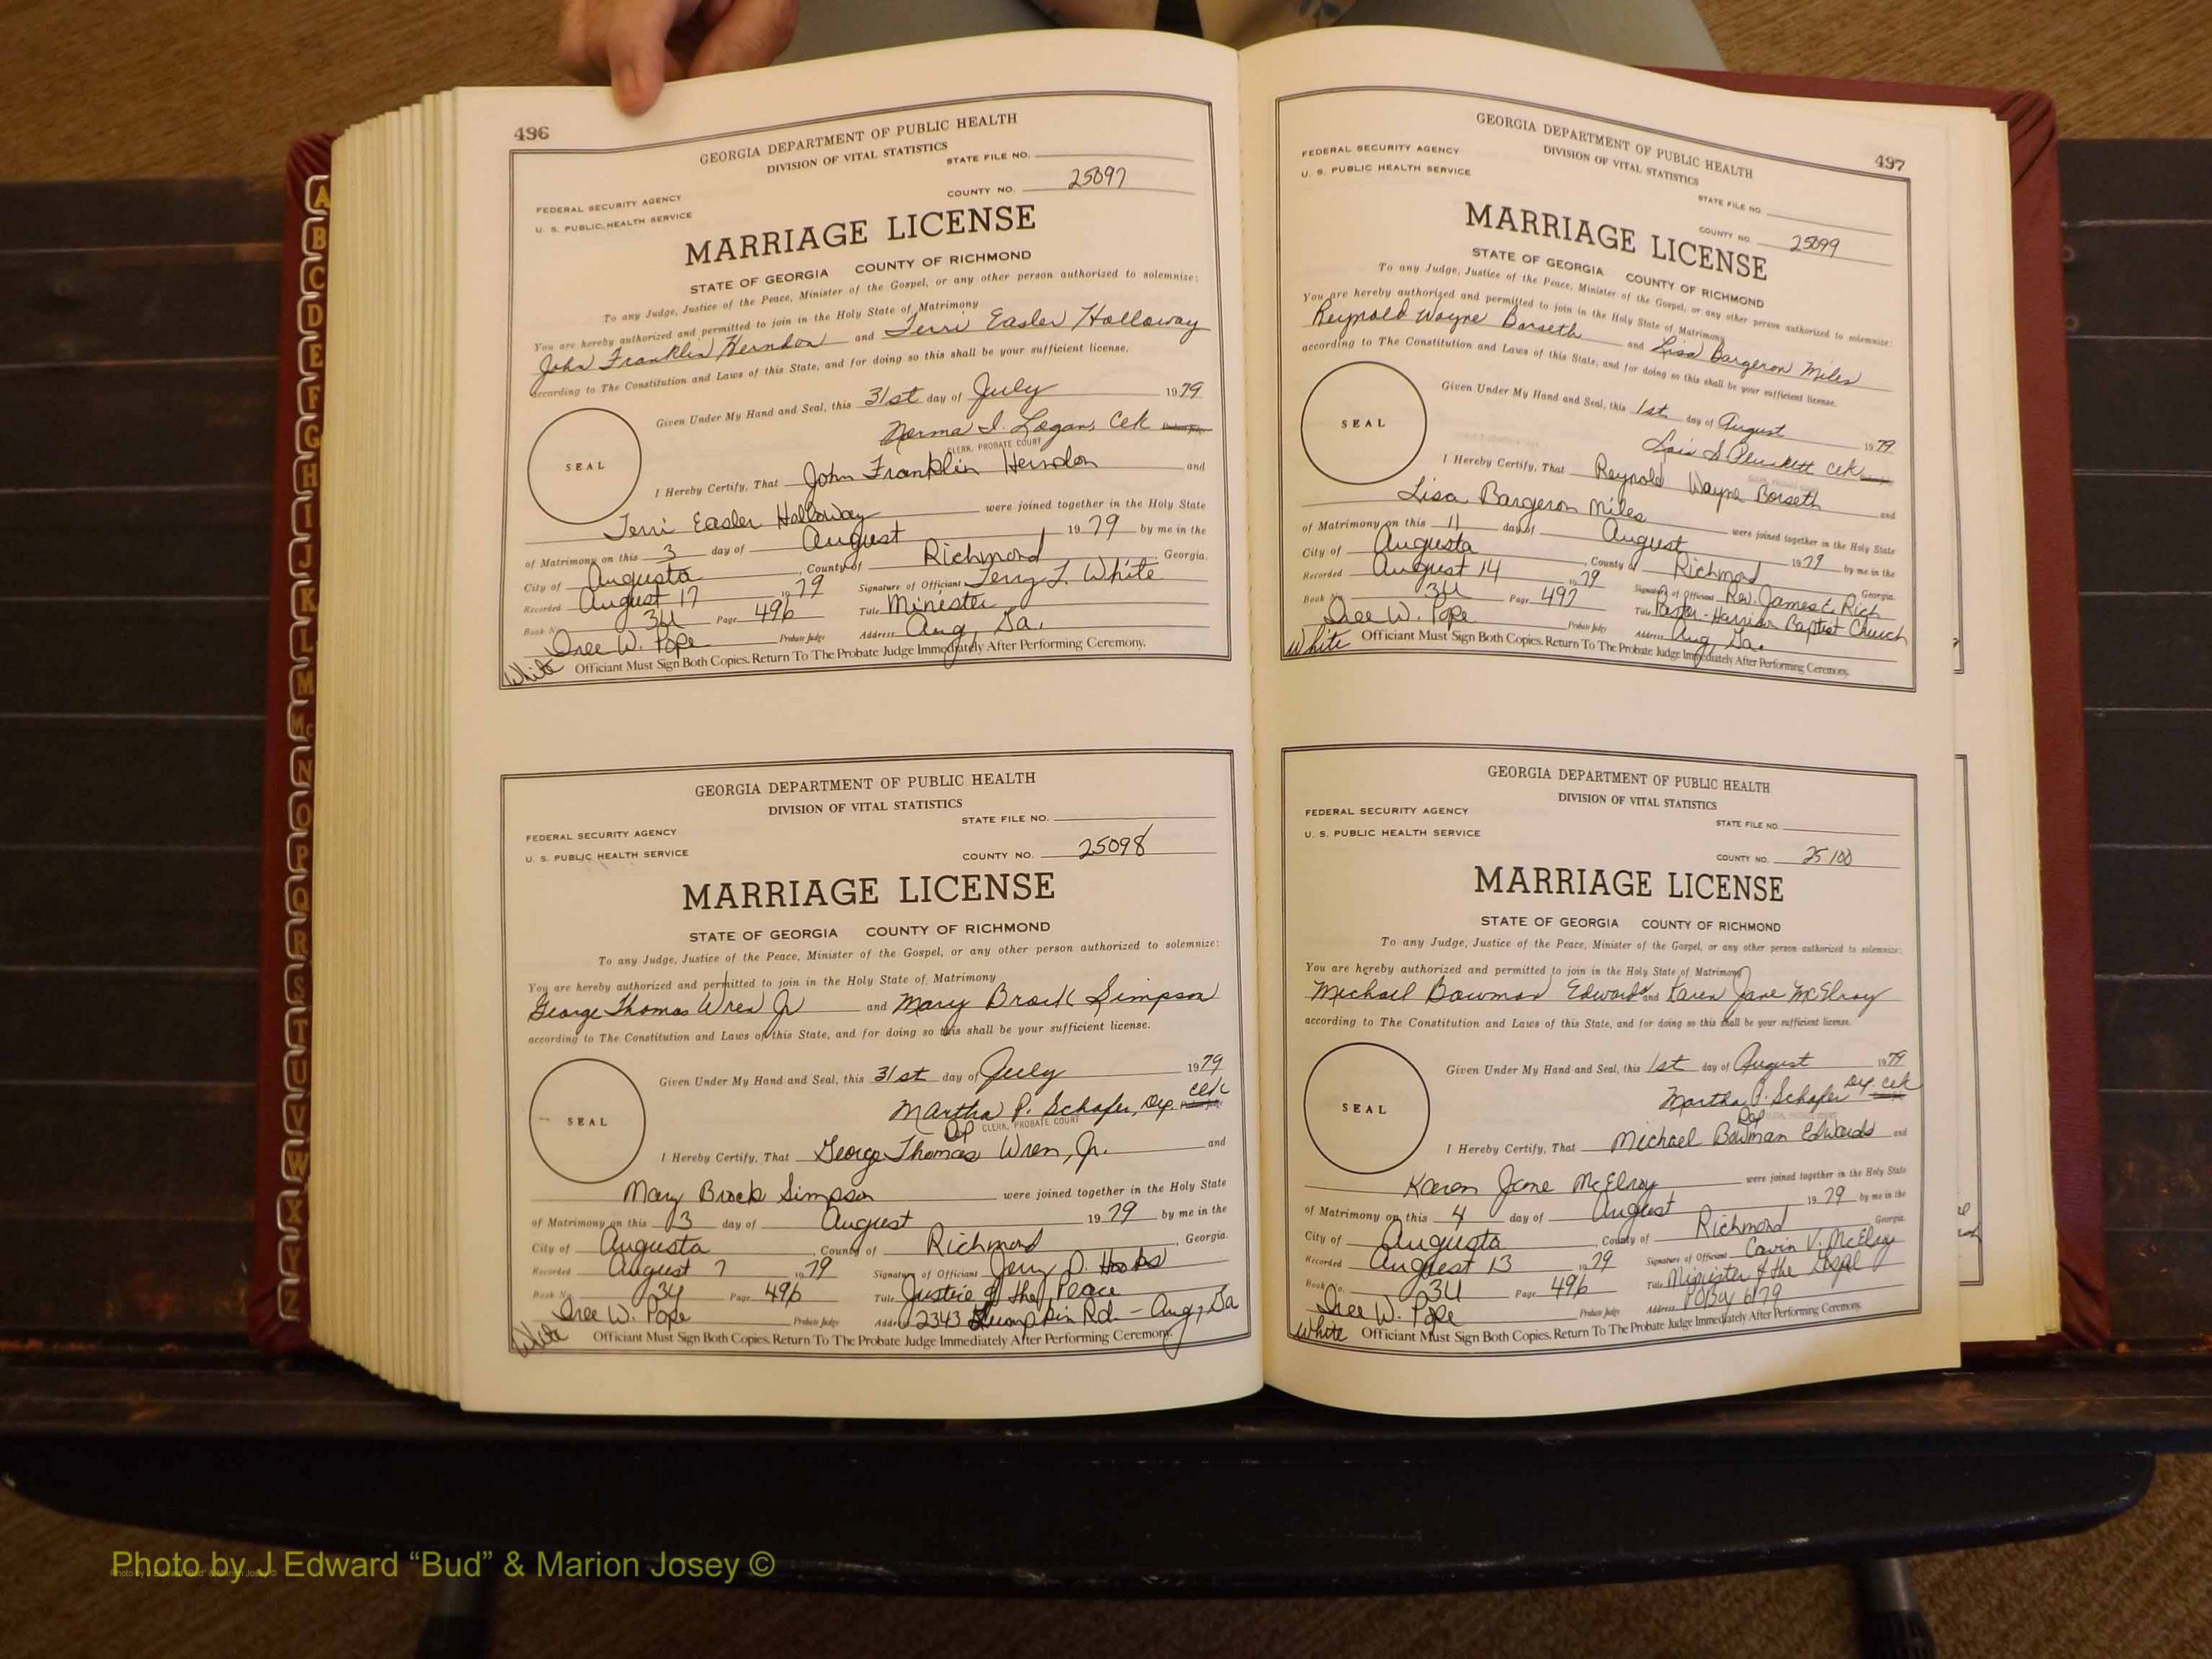 496
GEORGIA DEPARTMENT OF PUBLIC HEALTH
DIVISION OF VITAL STATISTICS
STATE FILE NO.
FEDERAL SECURITY AGENCY
U. S. PUBLIC HEALTH SERVICE
COUNTY NO. 25097
MARRIAGE LICENSE
STATE OF GEORGIA COUNTY OF RICHMOND
To any Judge, Justice of the Peace, Minister of the Gospel, or any other person authorized to solemnize:
You are hereby authorized and permitted to join in the Holy State of Matrimony
John Franklin Herndon and Terri Easler Holloway
according to The Constitution and Laws of this State, and for doing so this shall be your sufficient license.
Given Under My Hand and Seal, this 31st day of July 1979
Norma I. Logan, Cek
CLERK, PROBATE COURT
SEAL
I Hereby Certify, That John Franklin Herndon and
Terri Easler Holloway were joined together in the Holy State
of Matrimony on this 3 day of August 1979 by me in the
City of Augusta, County of Richmond, Georgia.
Recorded August 17 1979 Signature of Official Terry L. White
Book No. 3U Page 496 Title Minister
Dree W. Pope Probate Judge Address Aug, Ga.
White Officiant Must Sign Both Copies. Return To The Probate Judge Immediately After Performing Ceremony.
GEORGIA DEPARTMENT OF PUBLIC HEALTH
DIVISION OF VITAL STATISTICS
STATE FILE NO.
FEDERAL SECURITY AGENCY
U. S. PUBLIC HEALTH SERVICE
COUNTY NO. 25098
MARRIAGE LICENSE
STATE OF GEORGIA COUNTY OF RICHMOND
To any Judge, Justice of the Peace, Minister of the Gospel, or any other person authorized to solemnize:
You are hereby authorized and permitted to join in the Holy State of Matrimony
George Thomas Wren Jr and Mary Brock Simpson
according to The Constitution and Laws of this State, and for doing so this shall be your sufficient license.
Given Under My Hand and Seal, this 31st day of July 1979
Martha P. Schafer, Dep. cek
Dep CLERK, PROBATE COURT
SEAL
I Hereby Certify, That George Thomas Wren, Jr. and
Mary Brock Simpson were joined together in the Holy State
of Matrimony on this 3 day of August 1979 by me in the
City of Augusta, County of Richmond, Georgia.
Recorded August 7 1979 Signature of Official Jerry D. Hooks
Book No. 3U Page 496 Title Justice of the Peace
Dree W. Pope Probate Judge Address 2343 Lumpkin Rd. - Aug, Ga
White Officiant Must Sign Both Copies. Return To The Probate Judge Immediately After Performing Ceremony.
497
GEORGIA DEPARTMENT OF PUBLIC HEALTH
DIVISION OF VITAL STATISTICS
FEDERAL SECURITY AGENCY
U. S. PUBLIC HEALTH SERVICE
STATE FILE NO.
COUNTY NO. 25099
MARRIAGE LICENSE
STATE OF GEORGIA COUNTY OF RICHMOND
To any Judge, Justice of the Peace, Minister of the Gospel, or any other person authorized to solemnize:
You are hereby authorized and permitted to join in the Holy State of Matrimony
Reynold Wayne Borseth and Lisa Bargeron Miles
according to The Constitution and Laws of this State, and for doing so this shall be your sufficient license.
Given Under My Hand and Seal, this 1st day of August 1979
Lois S Plunkett cek
SEAL
I Hereby Certify, That Reynold Wayne Borseth and
Lisa Bargeron Miles were joined together in the Holy State
of Matrimony on this 11 day of August 1979 by me in the
City of Augusta, County of Richmond Georgia.
Recorded August 14 1979 Signature of Official Rev. James E. Rich
Book No. 3U Page 497 Title Pastor - Harrison Baptist Church
Dree W. Pope Probate Judge Address Aug, Ga.
White Officiant Must Sign Both Copies. Return To The Probate Judge Immediately After Performing Ceremony.
GEORGIA DEPARTMENT OF PUBLIC HEALTH
DIVISION OF VITAL STATISTICS
FEDERAL SECURITY AGENCY
STATE FILE NO.
U. S. PUBLIC HEALTH SERVICE
COUNTY NO. 25100
MARRIAGE LICENSE
STATE OF GEORGIA COUNTY OF RICHMOND
To any Judge, Justice of the Peace, Minister of the Gospel, or any other person authorized to solemnize:
You are hereby authorized and permitted to join in the Holy State of Matrimony
Michael Bowman Edwards and Karen Jane McElroy
according to The Constitution and Laws of this State, and for doing so this shall be your sufficient license.
Given Under My Hand and Seal, this 1st day of August 1979
Martha P. Schafer Dep. cek
Dep CLERK, PROBATE COURT
SEAL
I Hereby Certify, That Michael Bowman Edwards and
Karen Jane McElroy were joined together in the Holy State
of Matrimony on this 4 day of August 1979 by me in the
City of Augusta, County of Richmond Georgia.
Recorded August 13 1979 Signature of Official Cavin V. McElroy
Book No. 3U Page 496 Title Minister of the Gospel
Dree W. Pope Probate Judge Address P O Box 6179
White Officiant Must Sign Both Copies. Return To The Probate Judge Immediately After Performing Ceremony.
A
B
C
D
E
F
G
H
I
J
K
L
M
Mc
N
O
P
Q
R
S
T
U
V
W
X
Y
Z
Photo by J Edward “Bud” & Marion Josey ©
Photo by J Edward “Bud” & Marion Josey ©